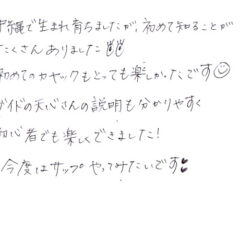 沖縄で生まれ育ちましたが、初めて知ることが
たくさんありました
初めてのカヤックもとっても楽しかったです
ガイドの天心さんの説明も分かりやすく
初心者でも楽しくできました!
今度はサップやってみたいです